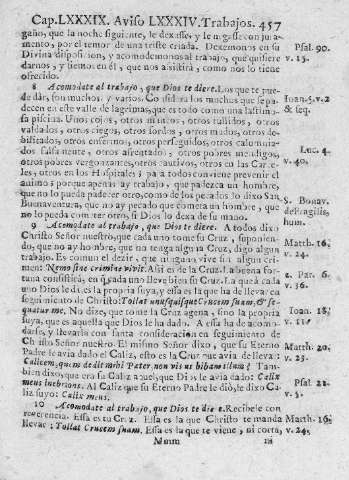 Cap. LXXXIX. Aviso LXXXIV. Trabajos. 457
gaño, que la noche siguiente, le dexasse, y le negasse con jura-
mento, por el temor de una triste criada. Dexemonos en su
Divina disposicion, y acomodemonos al trabajo, que quisiere
darnos, y fiemos en èl, que nos assistirà, como nos lo tiene
ofrecido.
Psal. 90.
v. 15.
8 Acomodate al trabajo, que Dios te diere. Los que te pue-
de dàr, son muchos, y varios. Considera los muchos que se pa-
decen en este valle de lagrimas, que es todo como una lastimo-
sa piscina. Unos cojos, otros mancos, otros tullidos, otros
valdados, otros ciegos, otros sordos, otros mudos, otros de-
bilitados, otros enfermos, otros perseguidos, otros calumnia-
dos falsamente, otros afreptados, otros pobres mendigos,
otros pobres vergonzantes, otros cautivos, otros en las Carce-
les, otros en los Hospitales; pa a todos conviene prevenir el
animo; porque apenas ay trabajo, que padezca un hombre,
que no lo pueda padecer otro, como de los pecados lo dixo San
Buenaventura, que no ay pecado que comera un hombre, que
no lo pueda cometer otro, si Dios lo dexa de su mano.
Ioan. 5. v. 2
& seq.
Luc. 4.
v. 40.
S. Bonav.
de Fragilis
hum.
9 Acomodate al trabajo, que Dios te diere. A todos dixo
Christo Señor nuestro, que cada uno tome su Cruz, suponien-
do, que no ay hombre, que no tenga alguna Cruz, digo algun
trabajo. Es comun el dezir, que ninguno vive sin algun cri-
men: Nemo sine crimine vivit. Assi es de la Cruz. La buena for-
tuna consistirà, en que cada uno lleve bien su Cruz. La que à cada
uno Dios le dà es la propria suya, y essa es la que ha de llevar en
seguimiento de Christo: Tollat unusquisque Crucem suam, & se-
quatur me. No dize, que tome la Cruz agena, sino la propria
suya, que es aquella que Dios le ha dado. A essa ha de acomo-
darse, y llevarla con santa consideracion en seguimiento de
Christo Señor nuestro. El mismo Señor dixo, que su Eterno
Padre le avia dado el Caliz, esto es la Cruz que avia de llevar:
Calicem, quem dedit mihi Pater, non vis ut bibam illum? Tam-
bien dixo, que era su Caliz aquel, que Dios le avia dado: Calix
meus inebrians. Al Caliz que su Eterno Padre le diò, le dixo Ca-
liz suyo: Calix meus.
Matth. 16.
v. 24.
2. Par. 6.
v. 36.
Ioan. 18.
v. 11.
Matth. 20.
v. 23.
Psal. 22.
v. 5.
10 Acomodate al trabajo, que Dios te diere. Recibele con
reverencia. Essa es tu Cruz. Essa es la que Christo te manda
llevar: Tollat Crucem suam. Essa es la que te viene, ni corta,
Matth. 16.
v. 24.
Mmm
ni